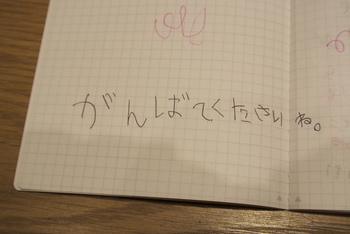 がんばてください ね。